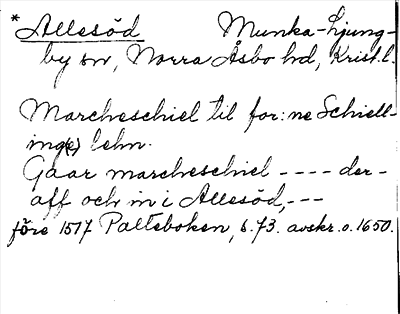 * Allesöd Munka-Ljung-
by sn, Norra Åsbo hd, Krist.l.
Marcheschiel til for:ne Schiell-
ing(e) lehn.
Gaar marcheschiel ---- der-
aff och in i Allesöd, ---
före 1517 Palteboken, s. 73. avskr. o. 1650.